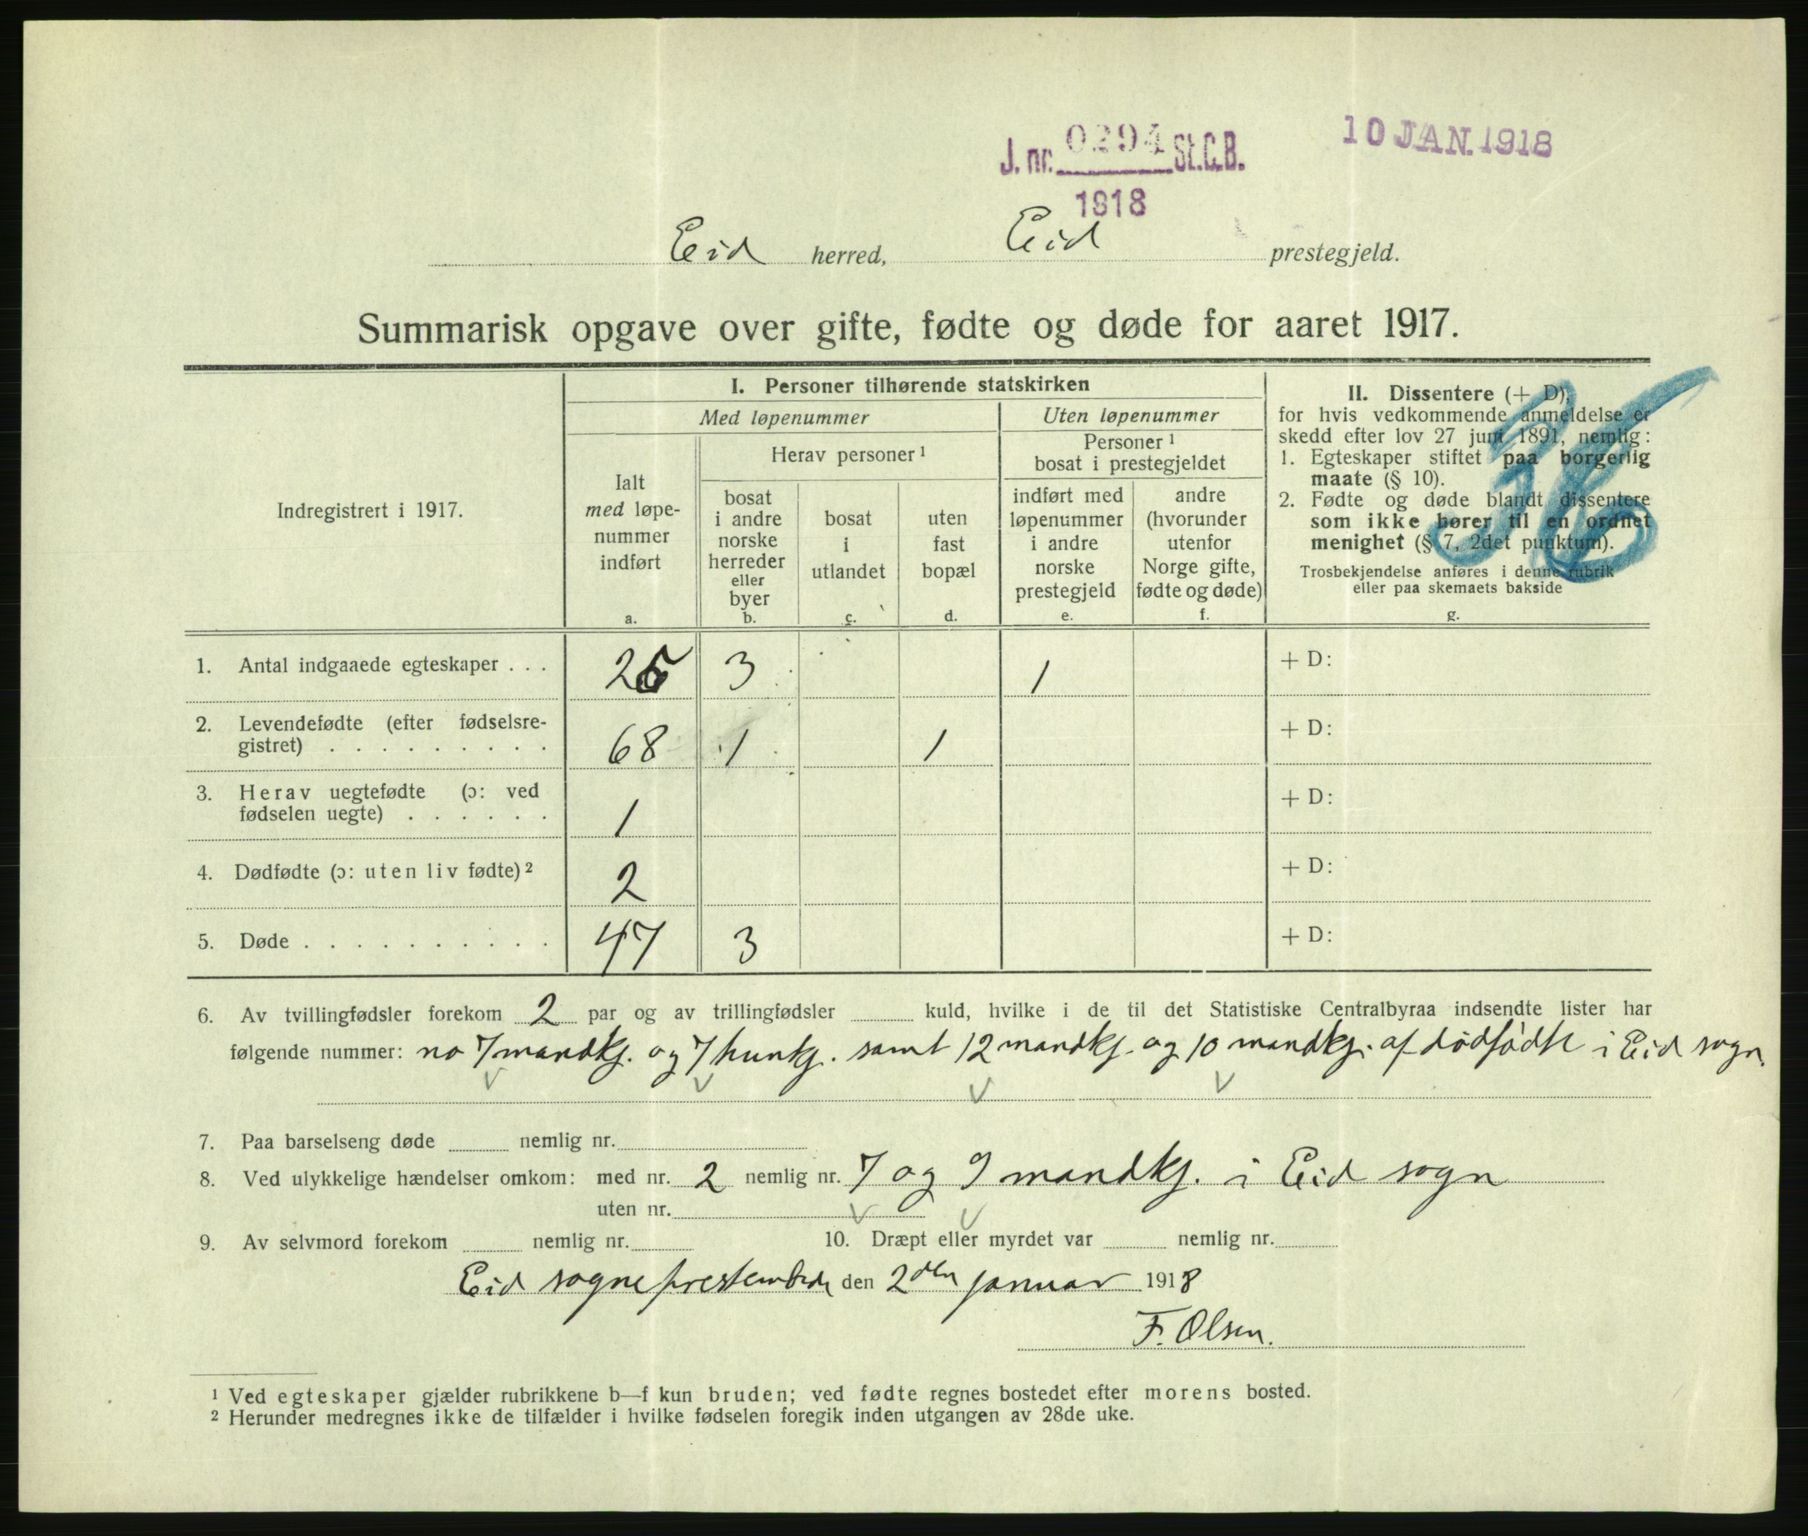 J. nr. 0294 St.C.B.
1918
10 JAN. 1918
Eid herred, Eid prestegjeld.
Summarisk opgave over gifte, fødte og døde for aaret 1917.
Indregistrert i 1917.
I. Personer tilhørende statskirken
Med løpenummer
Uten løpenummer
Ialt
med løpe-
nummer
indført
a.
Herav personer ¹
bosat
i andre
norske
herreder
eller
byer
b.
bosat
i
utlandet
c.
uten
fast
bopæl
d.
Personer ¹
bosat i prestegjeldet
indført med
løpenummer
i andre
norske
prestegjeld
e.
andre
(hvorunder
utenfor
Norge gifte,
fødte og døde)
f.
II. Dissentere (+ D),
for hvis vedkommende anmeldelse er
skedd efter lov 27 juni 1891, nemlig:
1. Egteskaper stiftet paa borgerlig
maate (§ 10).
2. Fødte og døde blandt dissentere
som ikke hører til en ordnet
menighet (§ 7, 2det punktum).
Trosbekjendelse anføres i denne rubrik
eller paa skemaets bakside
g.
1. Antal indgaaede egteskaper . . . 3 1 + D:
2. Levendefødte (efter fødselsre-
gistret) . . . . . . . . . 68 1 1 + D:
3. Herav uegtefødte (ɔ: ved
fødselen uegte) . . . . . . 1 + D:
4. Dødfødte (ɔ: uten liv fødte) ² 2 + D:
5. Døde . . . . . . . . . . 47 3 + D:
6. Av tvillingfødsler forekom 2 par og av trillingfødsler kuld, hvilke i de til det Statistiske Centralbyraa indsendte lister har
følgende nummer: no 7 mandkj. og 7 kunkj. samt 12 mandkj. og 10 mandkj. af dödfödte i Eid sogn
7. Paa barselseng døde nemlig nr.
8. Ved ulykkelige hændelser omkom: med nr. 2 nemlig nr. 7 og 9 mandkj. i Eid sogn
uten nr.
9. Av selvmord forekom nemlig nr. 10. Dræpt eller myrdet var nemlig nr.
Eid sogneprestembede den 2den januar 1918
F. Olsen.
¹ Ved egteskaper gjælder rubrikkene b—f kun bruden; ved fødte regnes bostedet efter morens bosted.
² Herunder medregnes ikke de tilfælder i hvilke fødselen foregik inden utgangen av 28de uke.